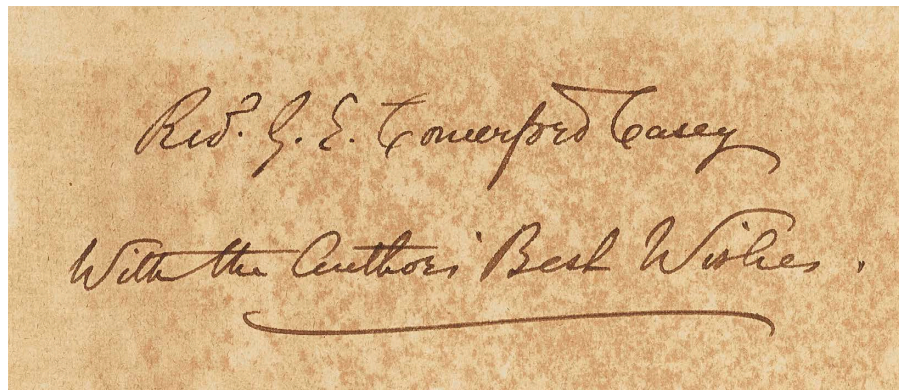 Rev<sup>d</sup>. G. E. Comerford Casey
With the Author's Best Wishes.